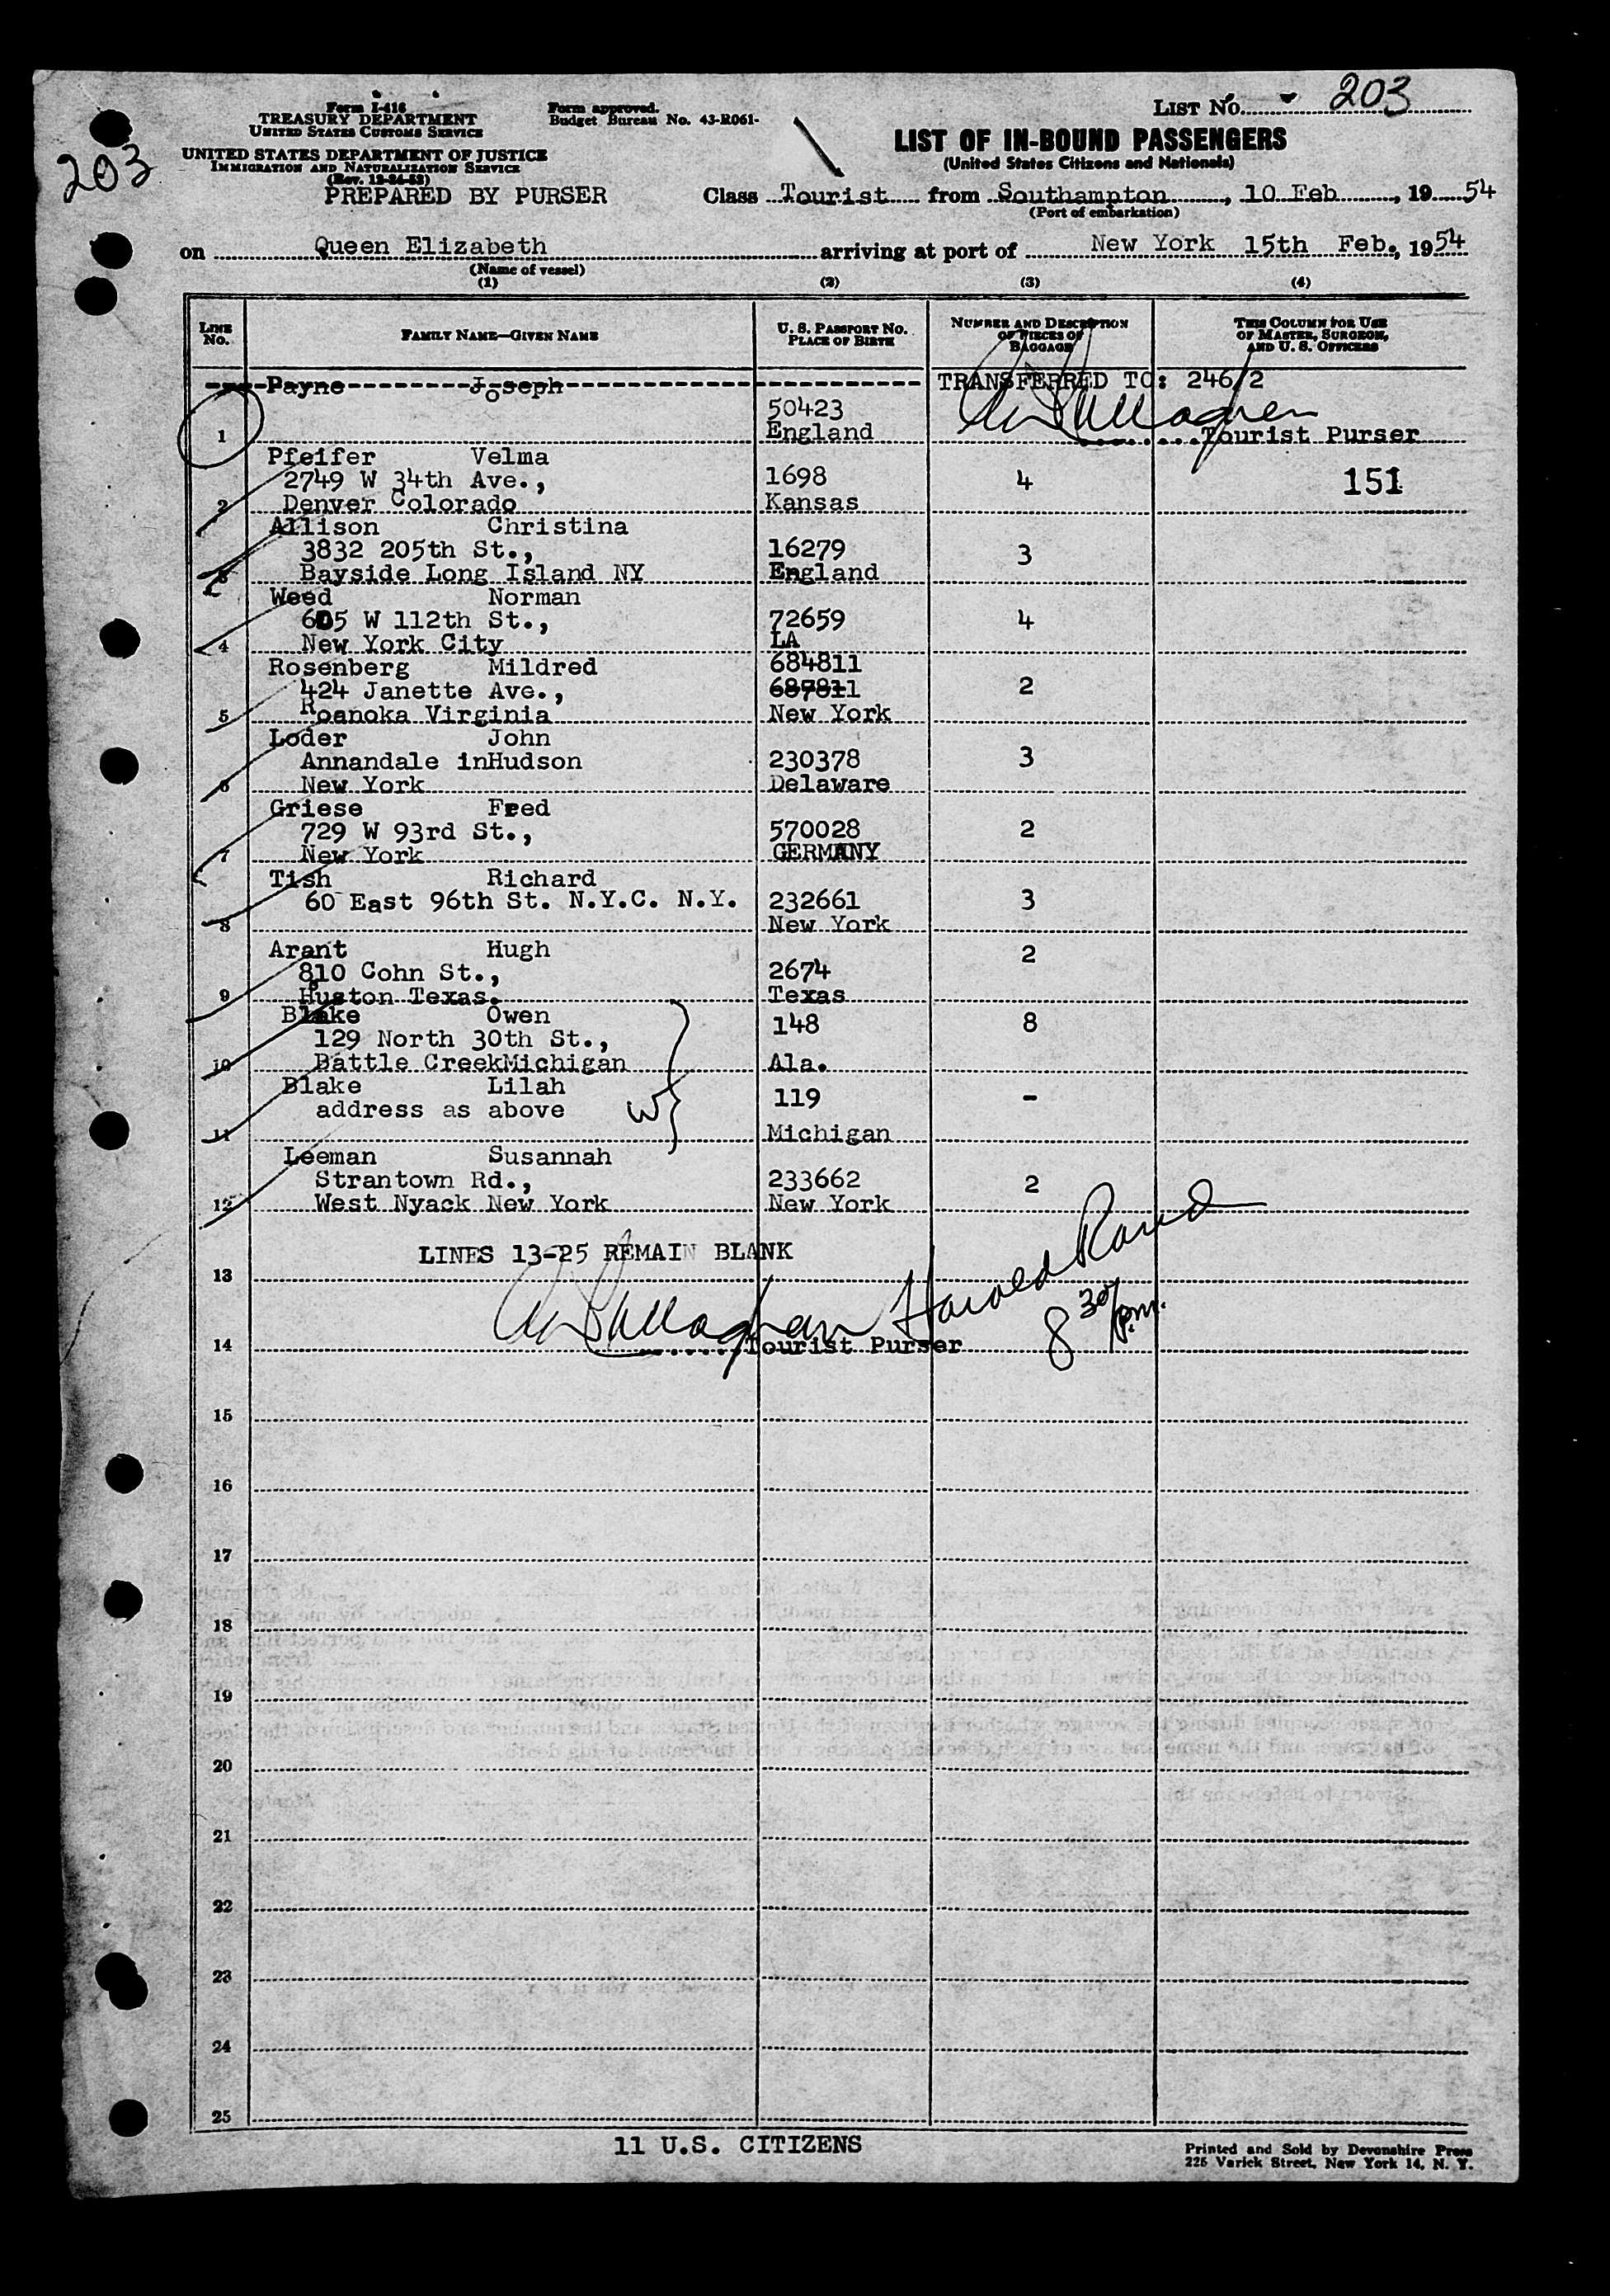 203
Form I-418
TREASURY DEPARTMENT
UNITED STATES CUSTOMS SERVICE
UNITED STATES DEPARTMENT OF JUSTICE
IMMIGRATION AND NATURALIZATION SERVICE
PREPARED BY PURSER
Form approved.
Budget Bureau No. 43-R061-
LIST No. 203
LIST OF IN-BOUND PASSENGERS
(United States Citizens and Nationals)
Class Tourist from Southampton, 10 Feb, 1954
(Port of embarkation)
on Queen Elizabeth arriving at port of New York 15th Feb., 1954
(Name of vessel)
(1) (2) (3) (4)
LINE No. FAMILY NAME—GIVEN NAME U. S. PASSPORT No. PLACE OF BIRTH NUMBER AND DESCRIPTION OF PIECES OF BAGGAGE THIS COLUMN FOR USE OF MASTER, SURGEON, AND U. S. OFFICERS
Payne Joseph TRANSFERRED TO: 246/2
50423
1 England Tourist Purser
Pfeifer Velma
2749 W 34th Ave., 1698 4 151
2 Denver Colorado Kansas
Allison Christina
3832 205th St., 16279 3
3 Bayside Long Island NY England
Weed Norman
605 W 112th St., 72659 4
4 New York City LA
Rosenberg Mildred 684811
424 Janette Ave., 687811 2
5 Roanoka Virginia New York
Loder John
Annandale inHudson 230378 3
6 New York Delaware
Griese Fred
729 W 93rd St., 570028 2
7 New York GERMANY
Tish Richard
60 East 96th St. N.Y.C. N.Y. 232661 3
8 New York
Arant Hugh 2
810 Cohn St., 2674
9 Huston Texas. Texas
Blake Owen 148 8
129 North 30th St.,
10 Battle CreekMichigan Ala.
Blake Lilah 119 -
address as above W
11 Michigan
Leeman Susannah
Strantown Rd., 233662 2
12 West Nyack New York New York
LINES 13-25 REMAIN BLANK
13
Harold
8 30/pm.
14 Tourist Purser
15
16
17
18
19
20
21
22
23
24
25
11 U.S. CITIZENS
Printed and Sold by Devonshire Press
225 Varick Street, New York 14, N. Y.